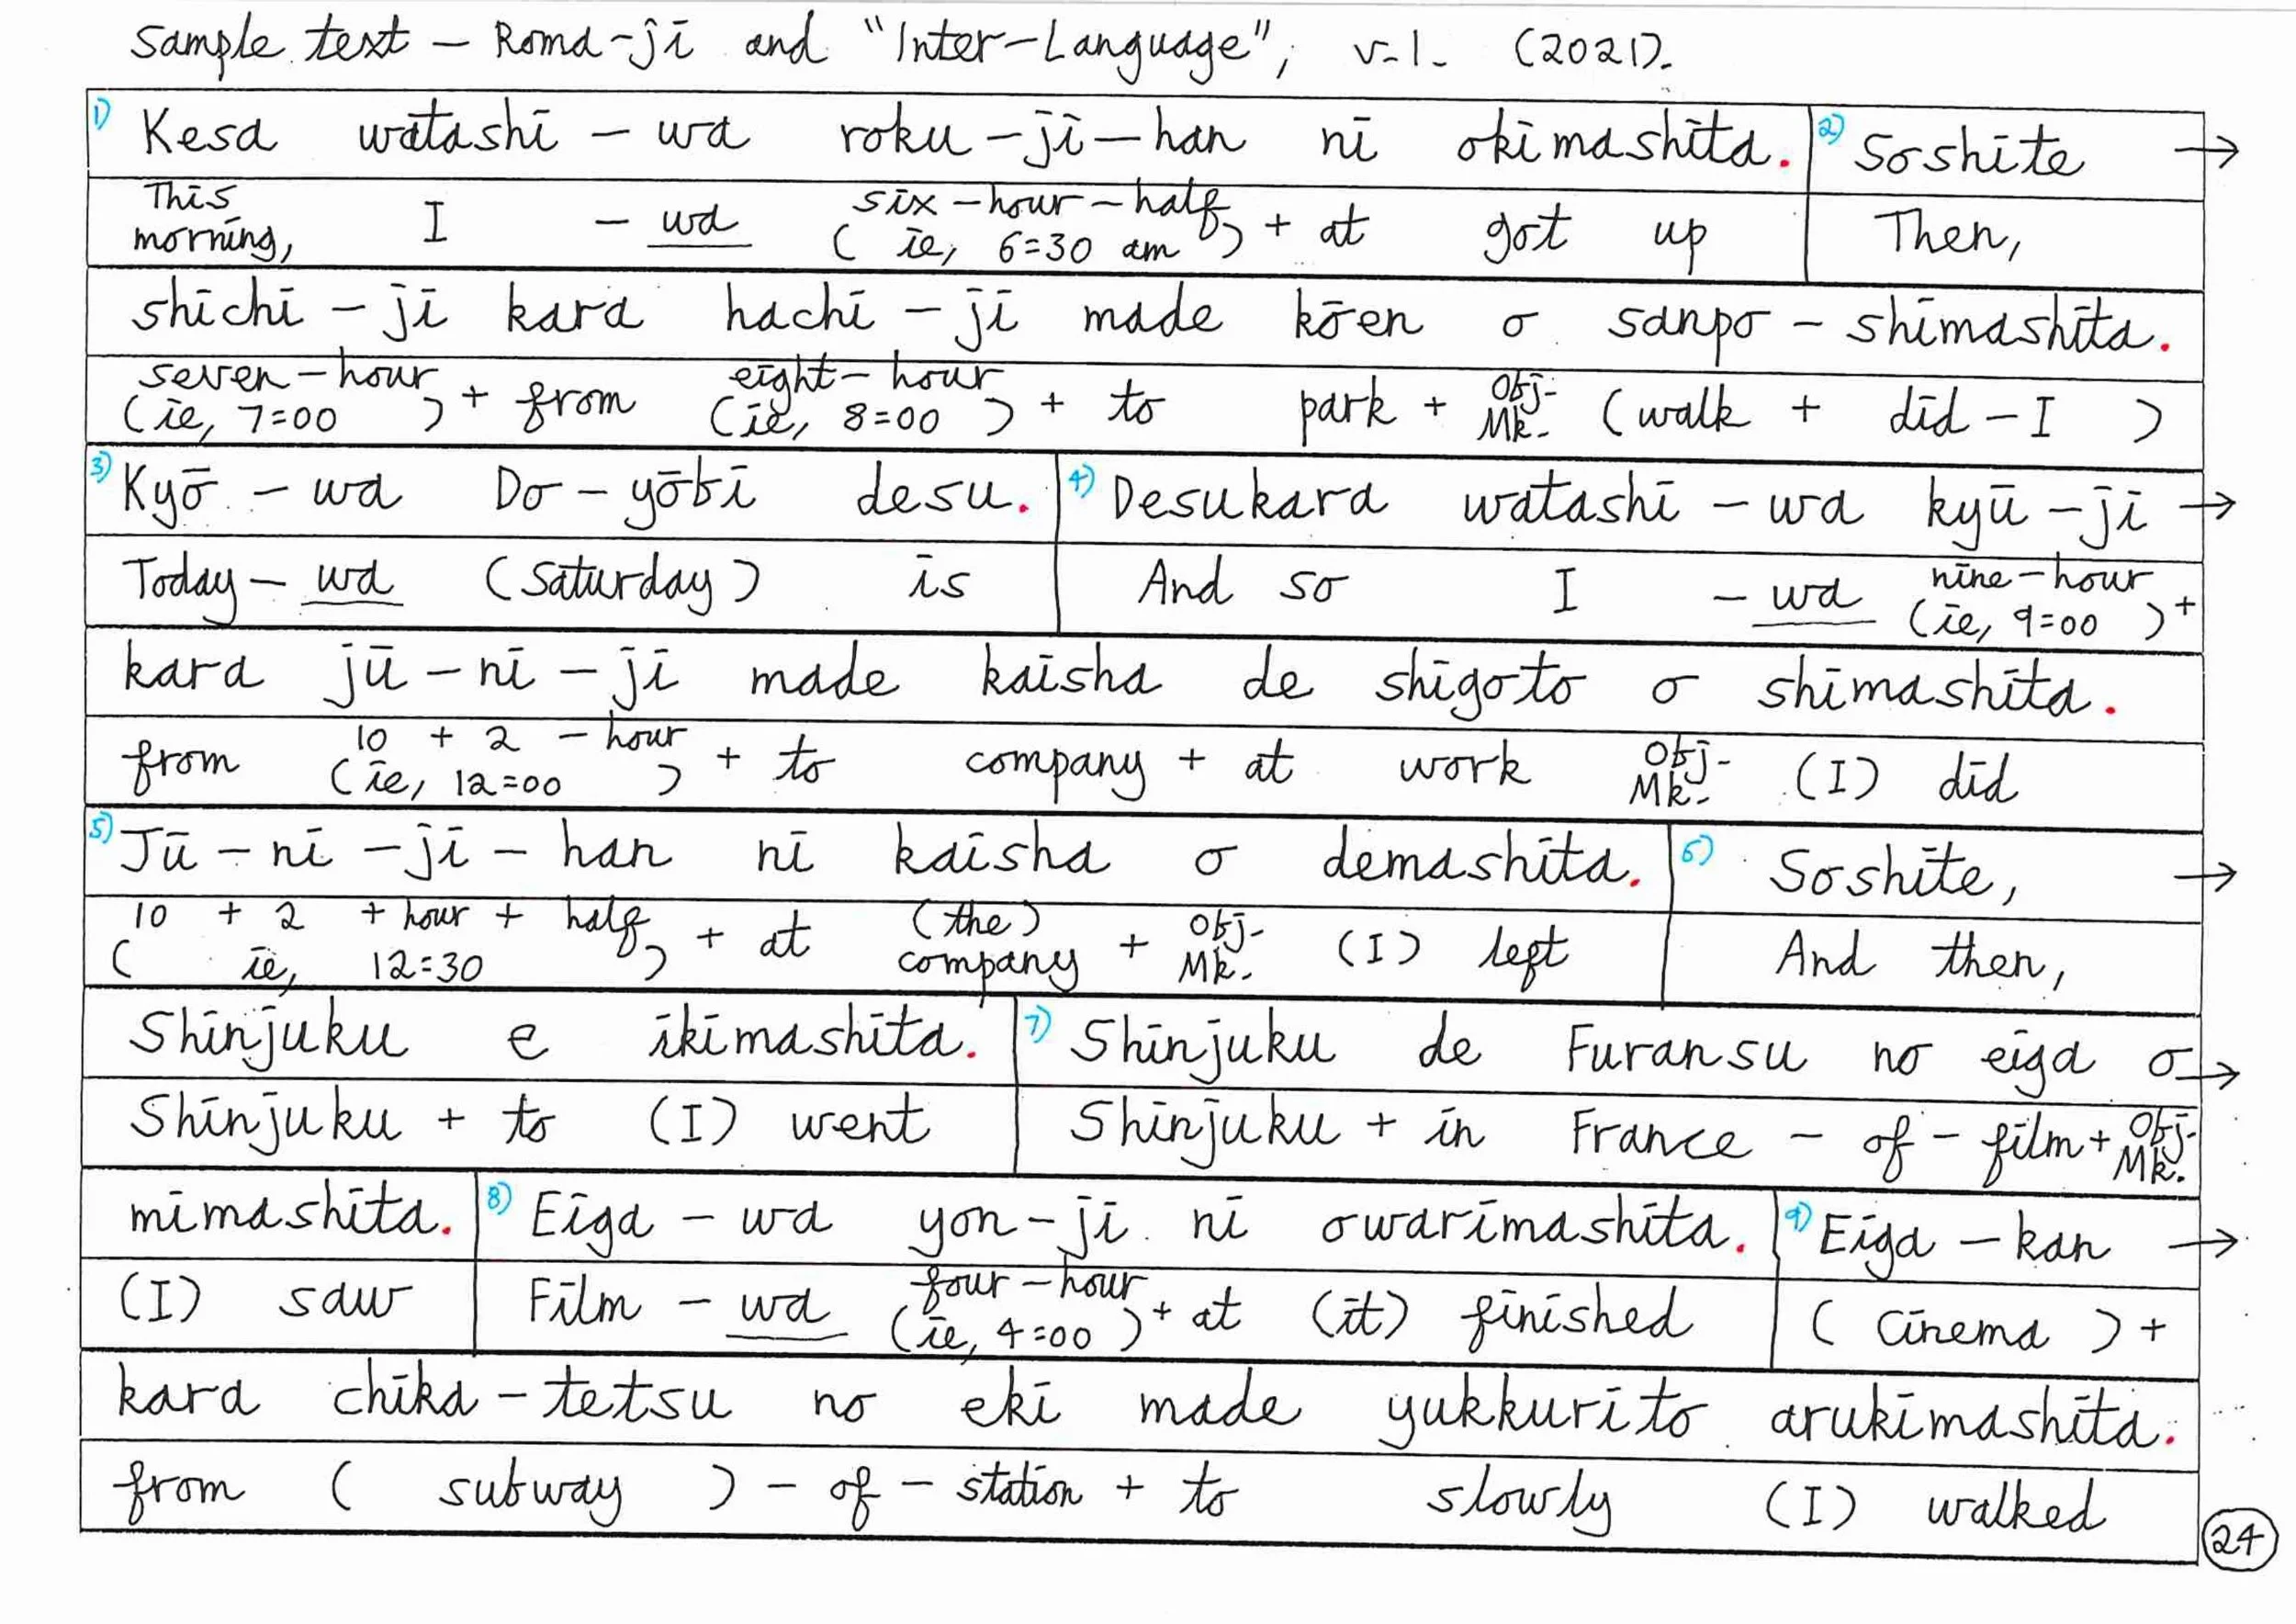 Sample text – Roma-ji and "Inter-Language", v.1. (2021).
1) Kesa watashi – wa roku – ji – han ni okimashita. 2) Soshite →
This morning, I – wa six – hour – half (ie, 6=30 am) + at got up Then,
shichi – ji kara hachi – ji made kōen o sanpo – shimashita.
seven – hour (ie, 7=00) + from eight – hour (ie, 8=00) + to park + Obj. Mk. (walk + did – I)
3) Kyō – wa Do – yōbi desu. 4) Desukara watashi – wa kyū – ji →
Today – wa (Saturday) is And so I – wa nine – hour (ie, 9=00) +
kara jū – ni – ji made kaisha de shigoto o shimashita.
from 10 + 2 – hour (ie, 12=00) + to company + at work Obj. Mk. (I) did
5) Jū – ni – ji – han ni kaisha o demashita. 6) Soshite, →
10 + 2 + hour + half (ie, 12=30) + at (the) company + Obj. Mk. (I) left And then,
Shinjuku e ikimashita. 7) Shinjuku de Furansu no eiga o →
Shinjuku + to (I) went Shinjuku + in France – of – film + Obj. Mk.
mimashita. 8) Eiga – wa yon – ji ni owarimashita. 9) Eiga – kan →
(I) saw Film – wa four – hour (ie, 4=00) + at (it) finished (cinema) +
kara chika – tetsu no eki made yukkurito arukimashita.
from (subway) – of – station + to slowly (I) walked
24